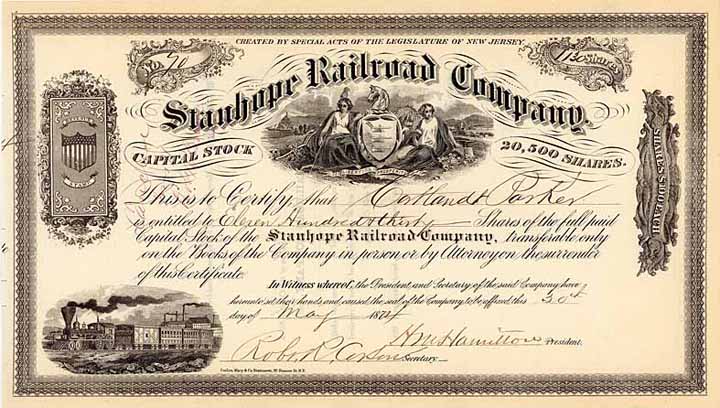 CREATED BY SPECIAL ACTS OF THE LEGISLATURE OF NEW JERSEY.
No. 70
1130 Shares
Stanhope Railroad Company,
CAPITAL STOCK
20,500 SHARES.
STAMP
SHARES $100 EACH
This is to Certify, that Cortlandt Parker
is entitled to Eleven Hundred & thirty Shares of the full paid
Capital Stock of the Stanhope Railroad Company, transferable only
on the Books of the Company in person or by Attorney on the surrender
of this Certificate.
In Witness whereof, the President and Secretary of the said Company have
hereunto set their hands and caused the seal of the Company to be affixed this 30th
day of May 1874
Hamilton President.
Robt. R. Secretary